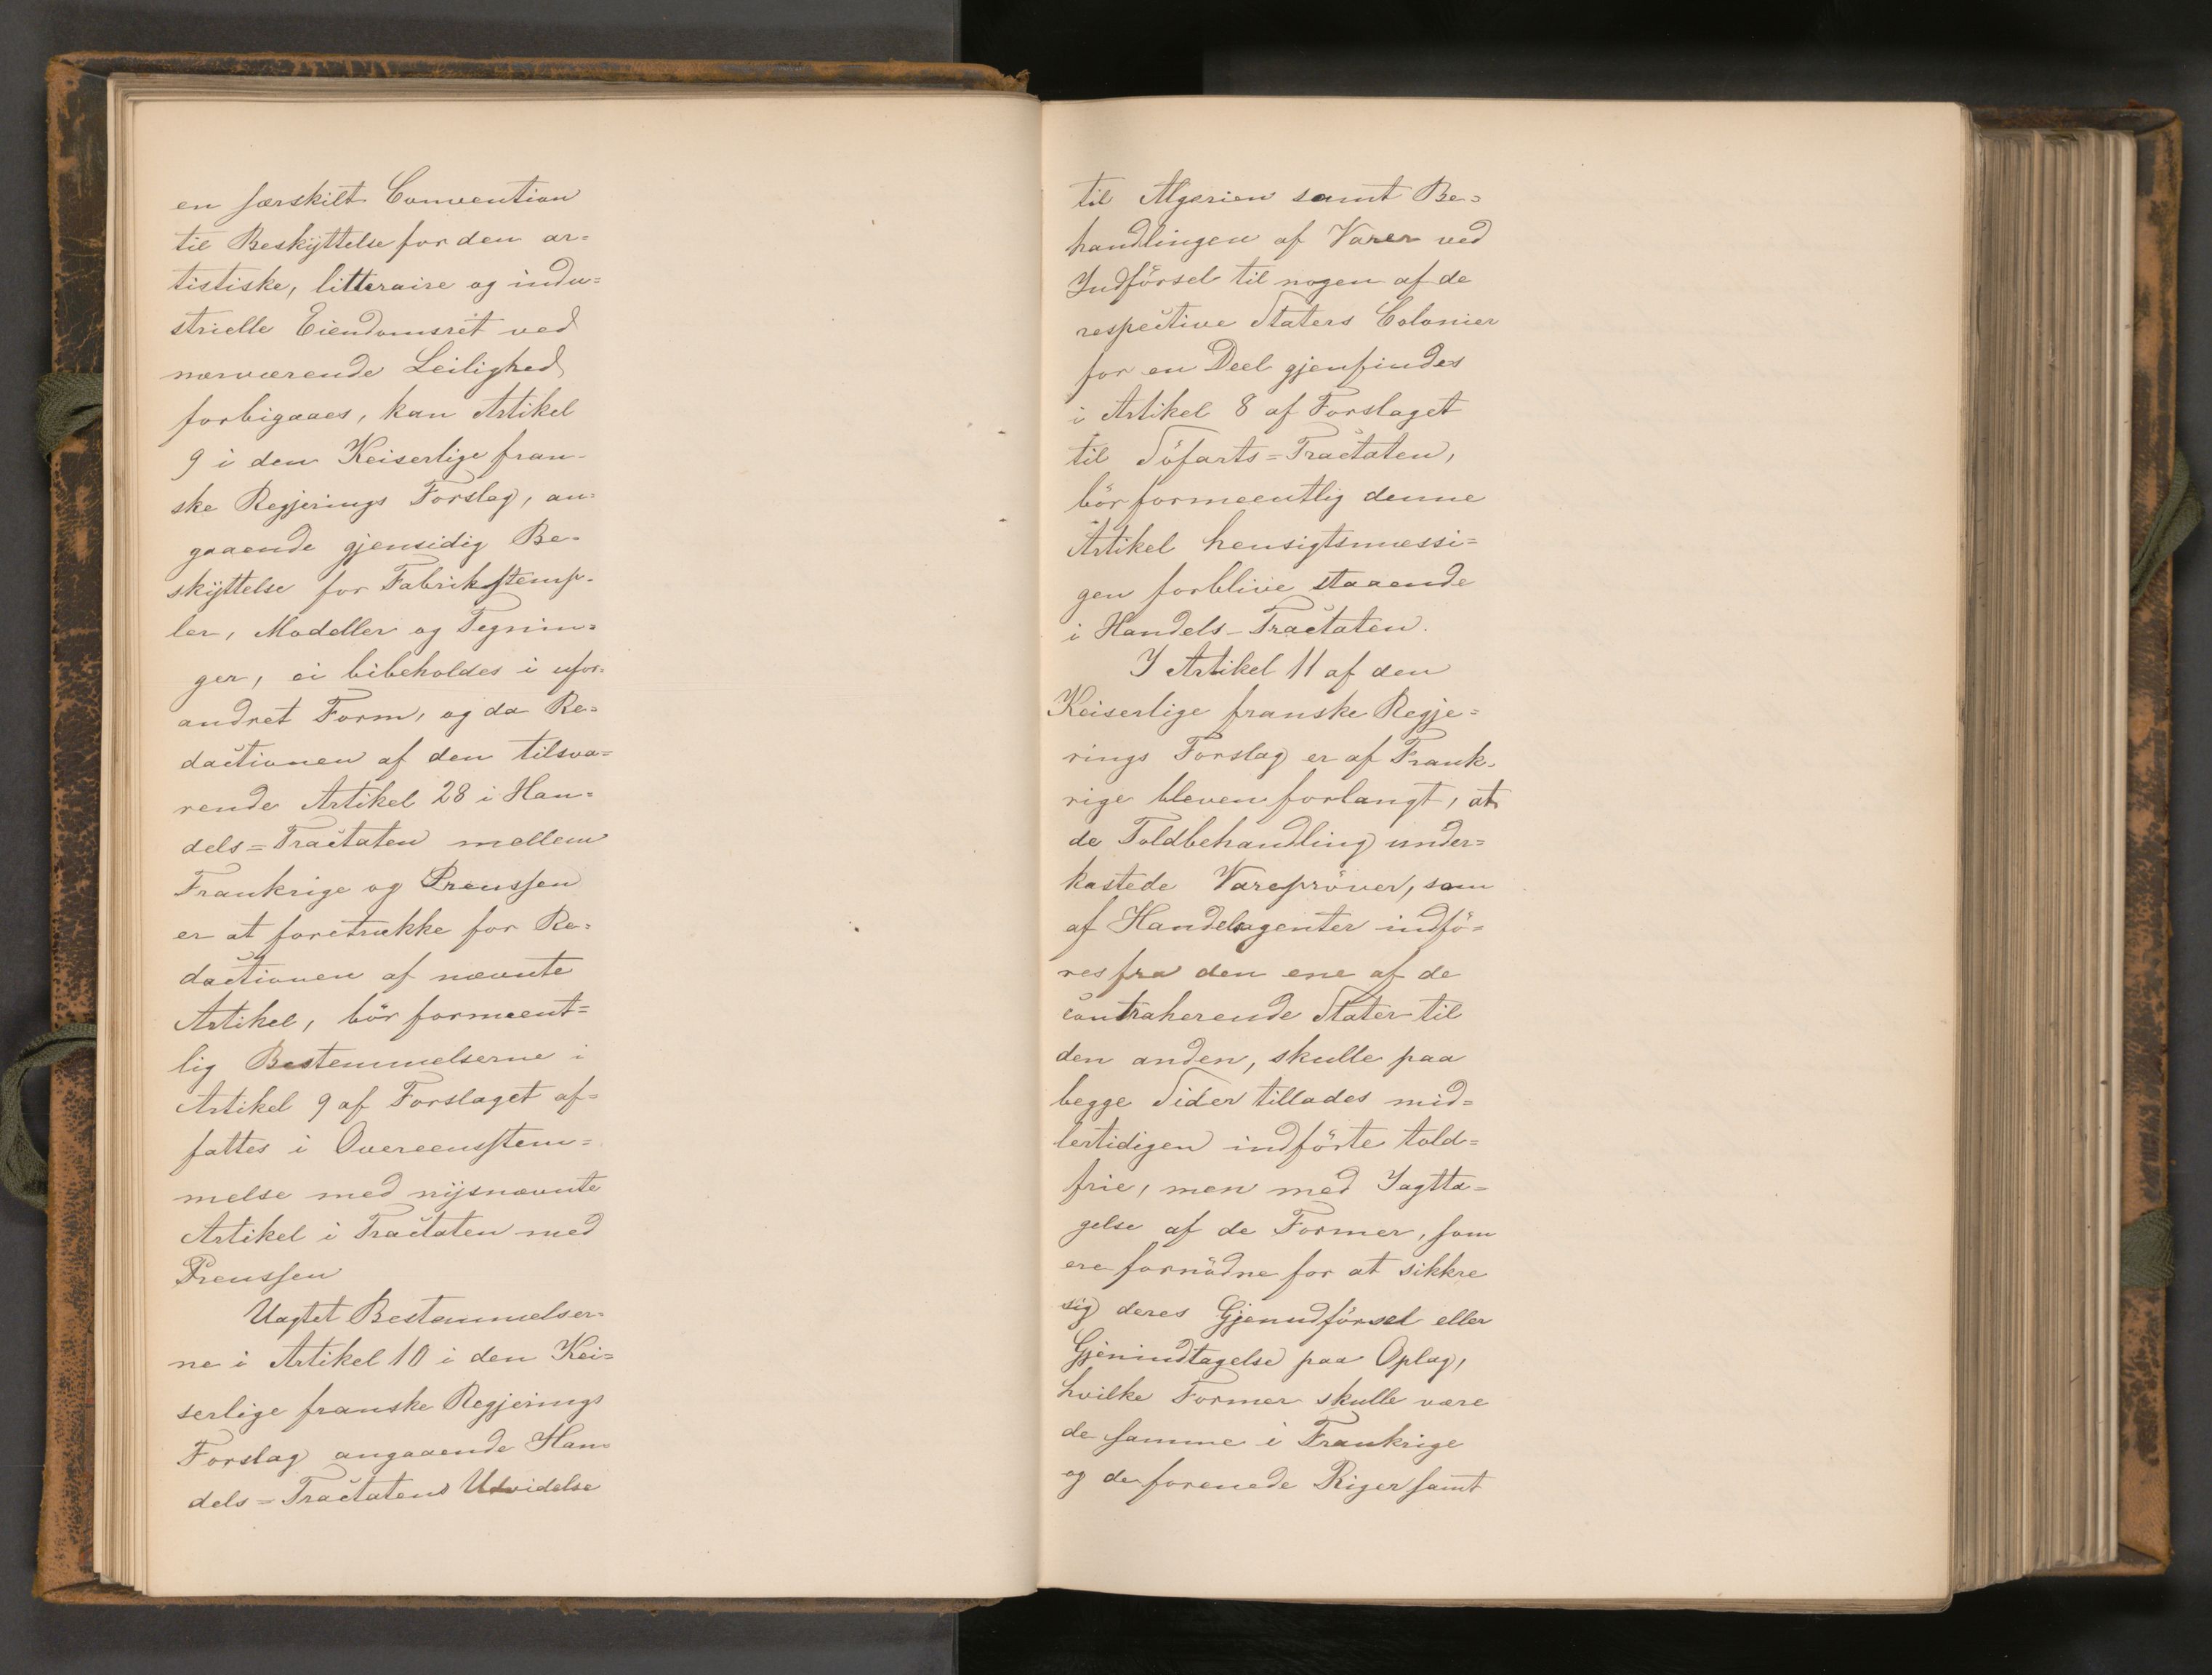 en særskilt Convention
til Beskyttelse for den ar=
tistiske, litteraire og indu=
strielle Eiendomsret ved
nærværende Leilighed
forbigaaes, kan Artikel
9 i den Keiserlige fran-
ske Regjerings Forslag, an=
gaaende gjensidig Be-
skyttelse for Fabrikstemp-
ler, Modeller og Tegnin=
ger, ei bibeholdes i ufor=
andret Form, og da Re=
dactionen af den tilsva=
rende Artikel 28 i Han=
dels=Tractaten mellem
Frankrige og Preussen
er at foretrække for Re=
dactionen af nævnte
Artikel, bör formeent=
lig Bestemmelserne i
Artikel 9 af Forslaget af=
fattes i Overeensstem=
melse med nysnævnte
Artikel i Tractaten med
Preussen
Uagtet Bestemmelser=
ne i Artikel 10 i den Kei=
serlige franske Regjerings
Forslag angaaende Han=
dels=Tractatens Udvidelse
til Algerien samt Be=
handlingen af Varer ved
Indförsel til nogen af de
respective Staters Colonier
for en Deel gjenfindes
i Artikel 8 af Forslaget
til Söfarts=Tractaten,
bör formeentlig denne
Artikel hensigtsmæssi=
gen forblive staaende
i Handels-Tractaten.
I Artikel 11 af den
Keiserlige franske Regje=
rings Forslag er af Frank-
rige bleven forlangt, at
de Toldbehandling under=
kastede Varepröver, som
af Handelsagenter indfö=
res fra den ene af de
contraherende Stater til
den anden, skulle paa
begge Sider tillades mid=
lertidigen indförte told=
frie, men med Iagtta=
gelse af de Former, som
ere fornödne for at sikkre
sig deres Gjenudförsel eller
Gjenindtagelse paa Oplag,
hvilke Former skulle være
de samme i Frankrige
og de forenede Riger samt